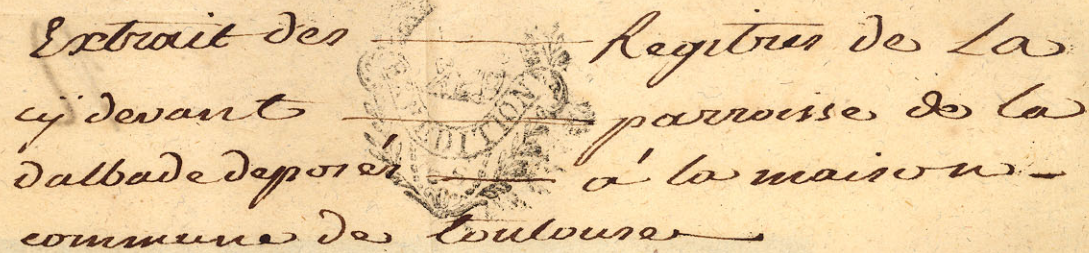 Extrait des Registres de La
cy devant parroisse de la
dalbade deposés à la maison-
commune de toulouse
EXPEDITION